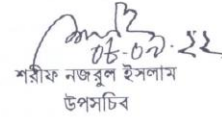 ০৪-০৭-২২
শরীফ নজরুল ইসলাম
উপসচিব